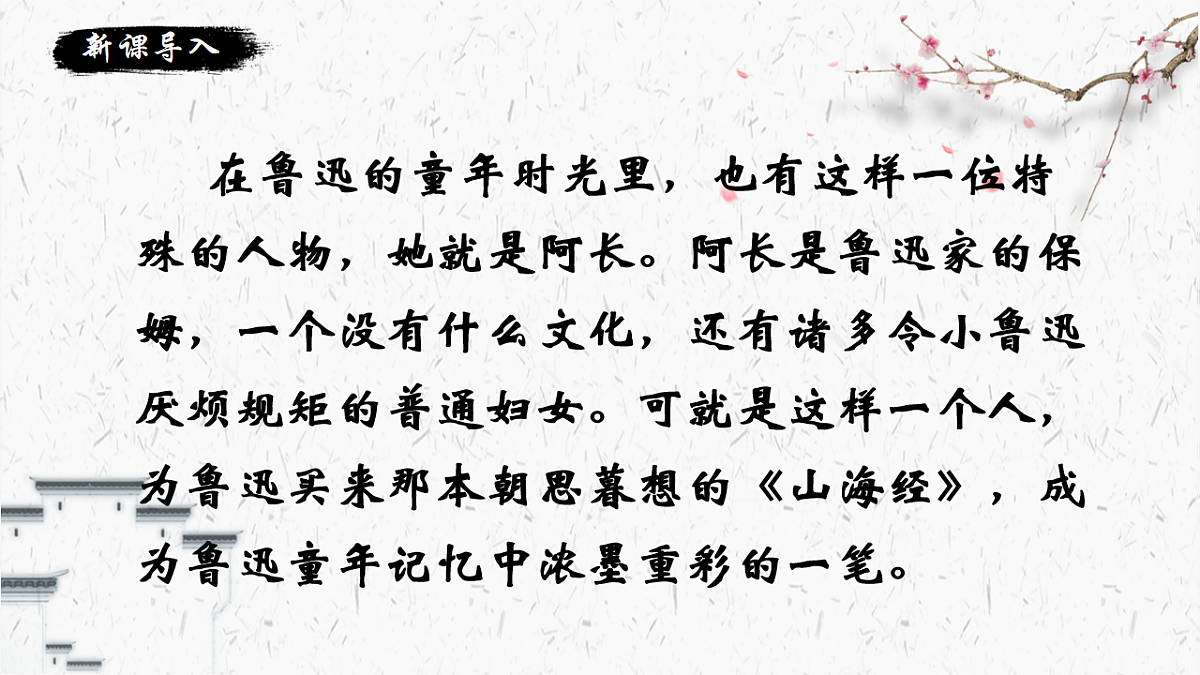 新课导入
在鲁迅的童年时光里，也有这样一位特
殊的人物，她就是阿长。阿长是鲁迅家的保
姆，一个没有什么文化，还有诸多令小鲁迅
厌烦规矩的普通妇女。可就是这样一个人，
为鲁迅买来那本朝思暮想的《山海经》，成
为鲁迅童年记忆中浓墨重彩的一笔。